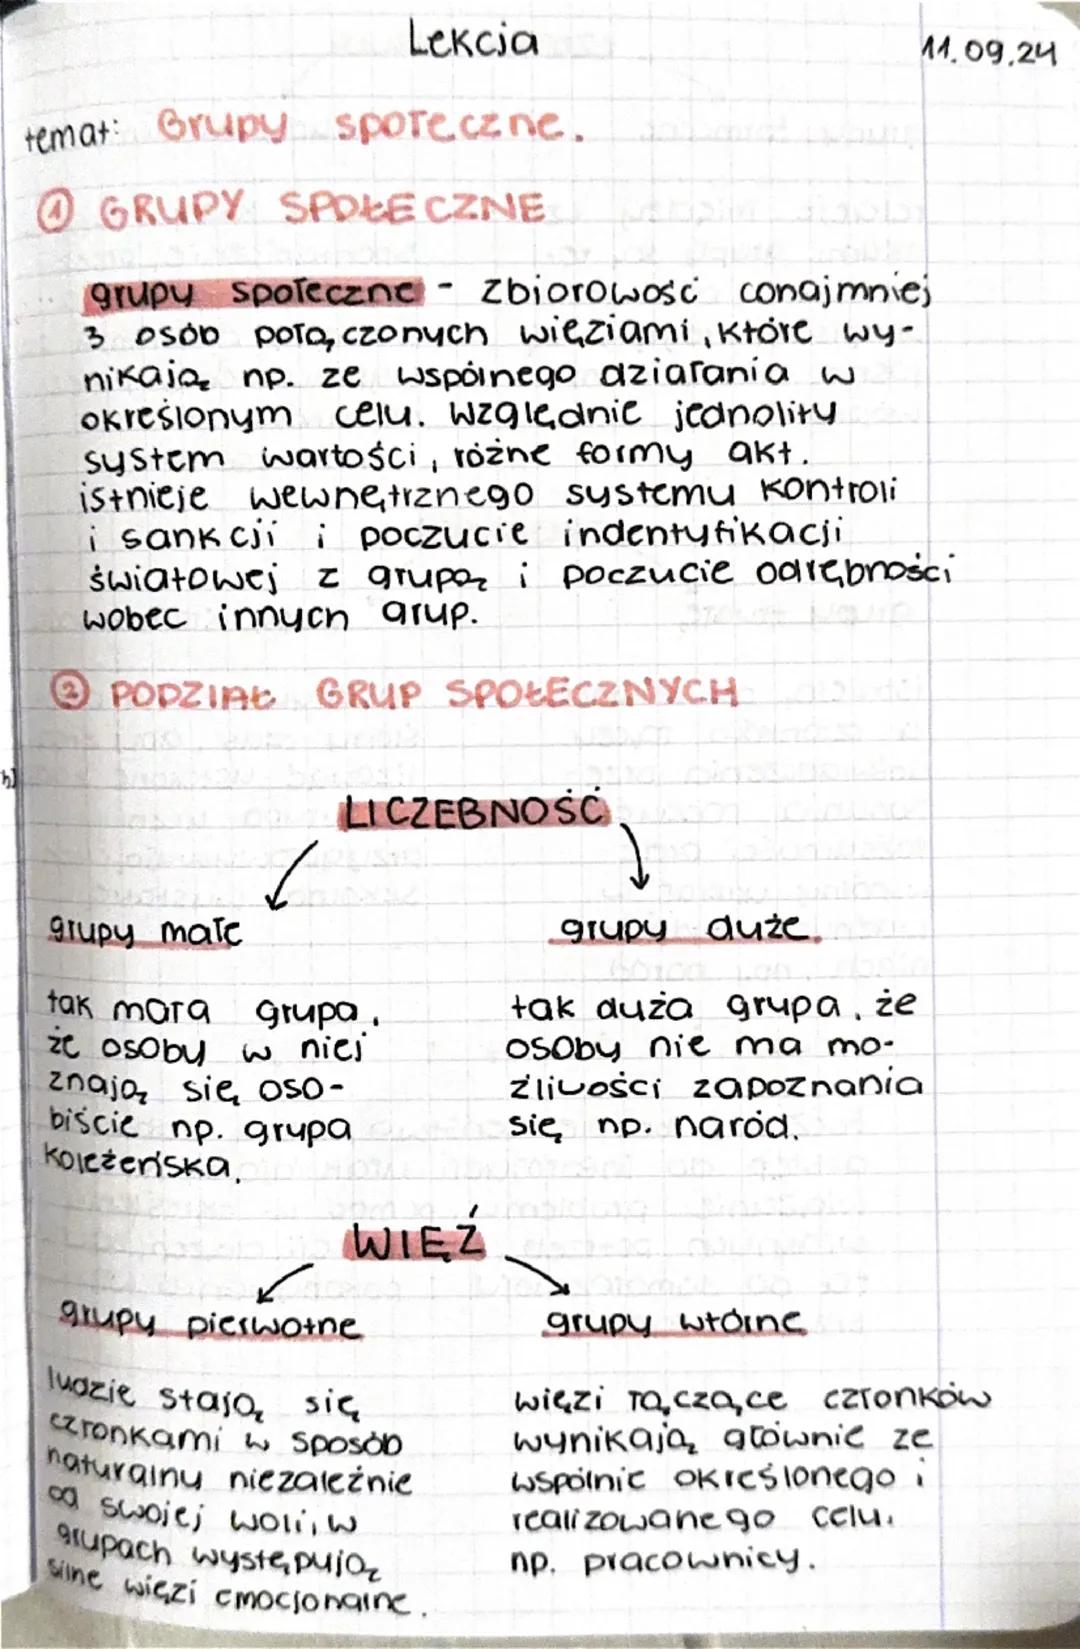 Lekcja
11.09.24
temat: Grupy społeczne.
① GRUPY SPOŁECZNE
grupy społeczne - zbiorowość conajmniej
3 osób połączonych więziami, które wy-
nikają np. ze wspólnego działania w
określonym celu. Względnie jednolity
system wartości, różne formy akt.
istnieje wewnętrznego systemu kontroli
i sankcji i poczucie indentyfikacji
światowej z grupą i poczucie odrębności
wobec innych grup.
② PODZIAŁ GRUP SPOŁECZNYCH
LICZEBNOŚĆ
grupy małe
tak mała grupa,
że osoby w niej
znają się oso-
biście np. grupa
koleżeńska.
grupy duże.
tak duża grupa, że
osoby nie ma mo-
żliwości zapoznania
się np. naród.
WIĘŹ
grupy pierwotne
ludzie stają się
członkami w sposób
naturalny niezależnie
od swojej woli, w
grupach występują
silne więzi emocjonalne.
grupy wtórne
więzi łączące członków
wynikają głównie ze
wspólnie określonego i
realizowanego celu.
np. pracownicy.